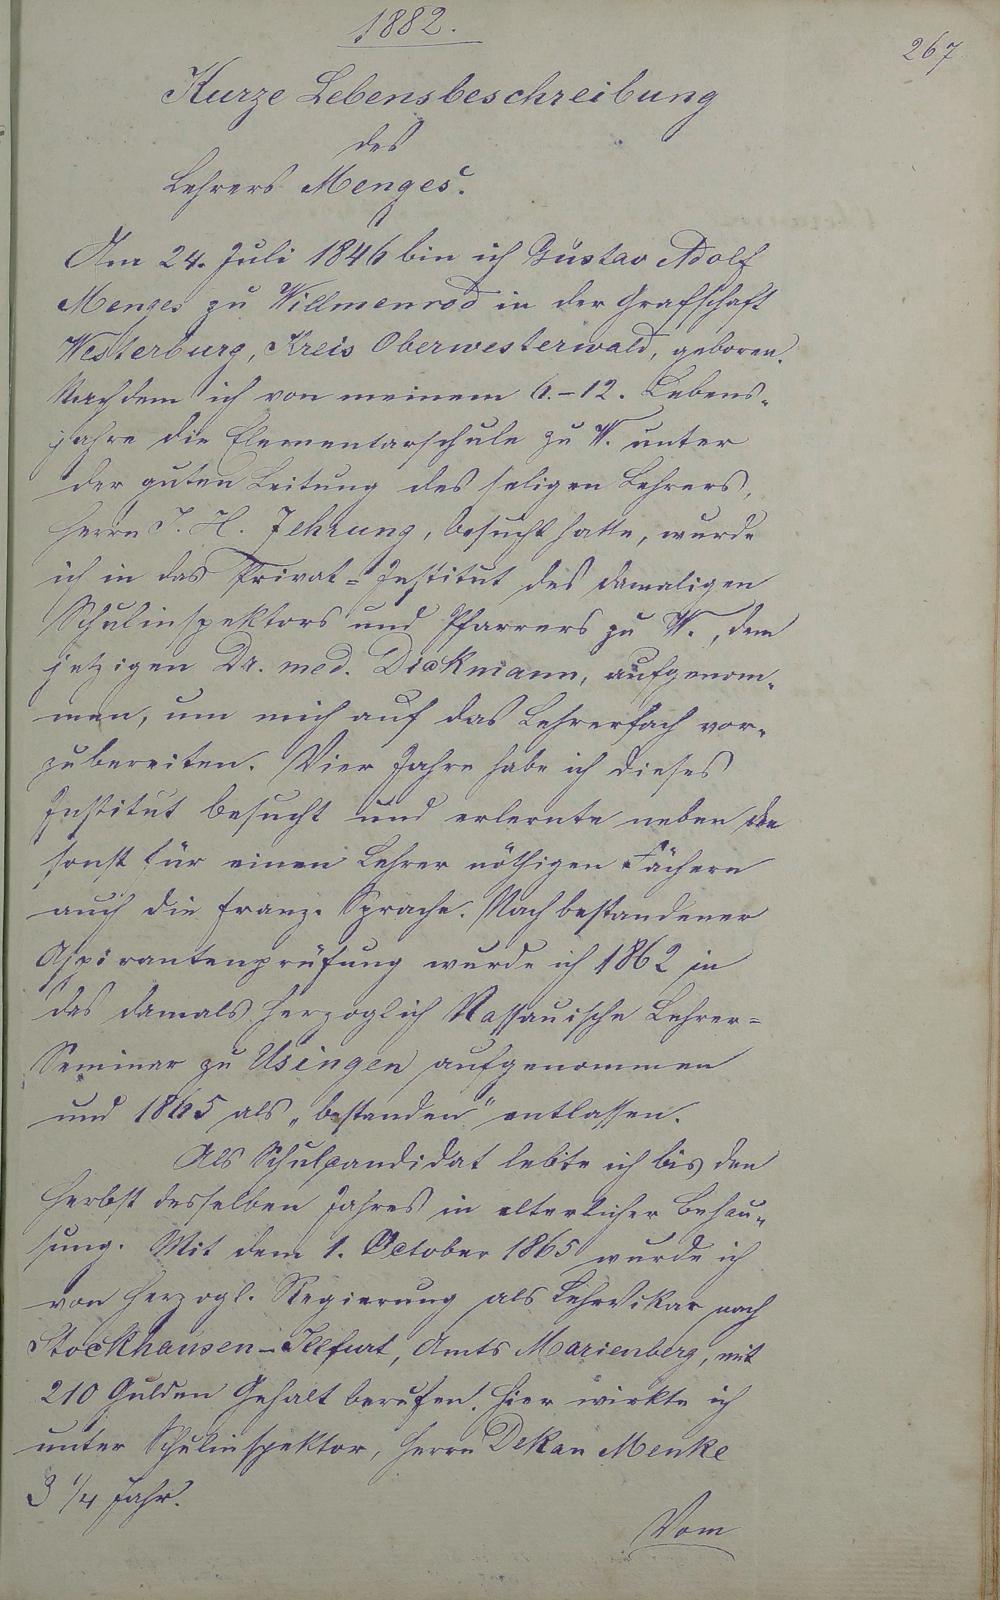 1882.
267
Kurze Lebensbeschreibung
des
Lehrers Menges.
Am 24. Juli 1846 bin ich Gustav Adolf
Menges zu Willmenrod in der Grafschaft
Westerburg, Kreis Oberwesterwald, geboren.
Nachdem ich von meinem 6.-12. Lebens-
jahre die Elementarschule zu W. unter
der guten Leitung des seligen Lehrers,
Herrn J. H. Jehrung, besucht hatte, wurde
ich in das Privat-Institut des damaligen
Schulinspektors und Pfarrers zu W., dem
jetzigen Dr. med. Dickmann, aufgenom-
men, um mich auf das Lehrerfach vor-
zubereiten. Vier Jahre habe ich dieses
Institut besucht und erlernte neben den
sonst für einen Lehrer nöthigen Fächern
auch die franz. Sprache. Nach bestandener
Aspirantenprüfung wurde ich 1862 in
das damals herzoglich Nassauische Lehrer-
Seminar zu Usingen aufgenommen
und 1865 als „bestanden" entlassen.
Als Schulcandidat lebte ich bis den
Herbst desselben Jahres in elterlicher Behau-
sung. Mit dem 1. October 1865 wurde ich
von Herzogl. Regierung als Lehrvikar nach
Stockhausen-Illfurt, Amts Marienberg, mit
210 Gulden Gehalt berufen. Hier wirkte ich
unter Schulinspektor, Herrn Dekan Menke
3 1/4 Jahr.
Vom